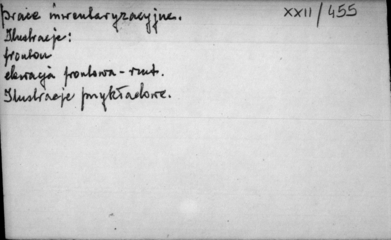 prace inwentaryzacyjne.
XXII/455
Ilustracje:
fronton
elewacja frontowa - rzut.
Ilustracje przykładowe.